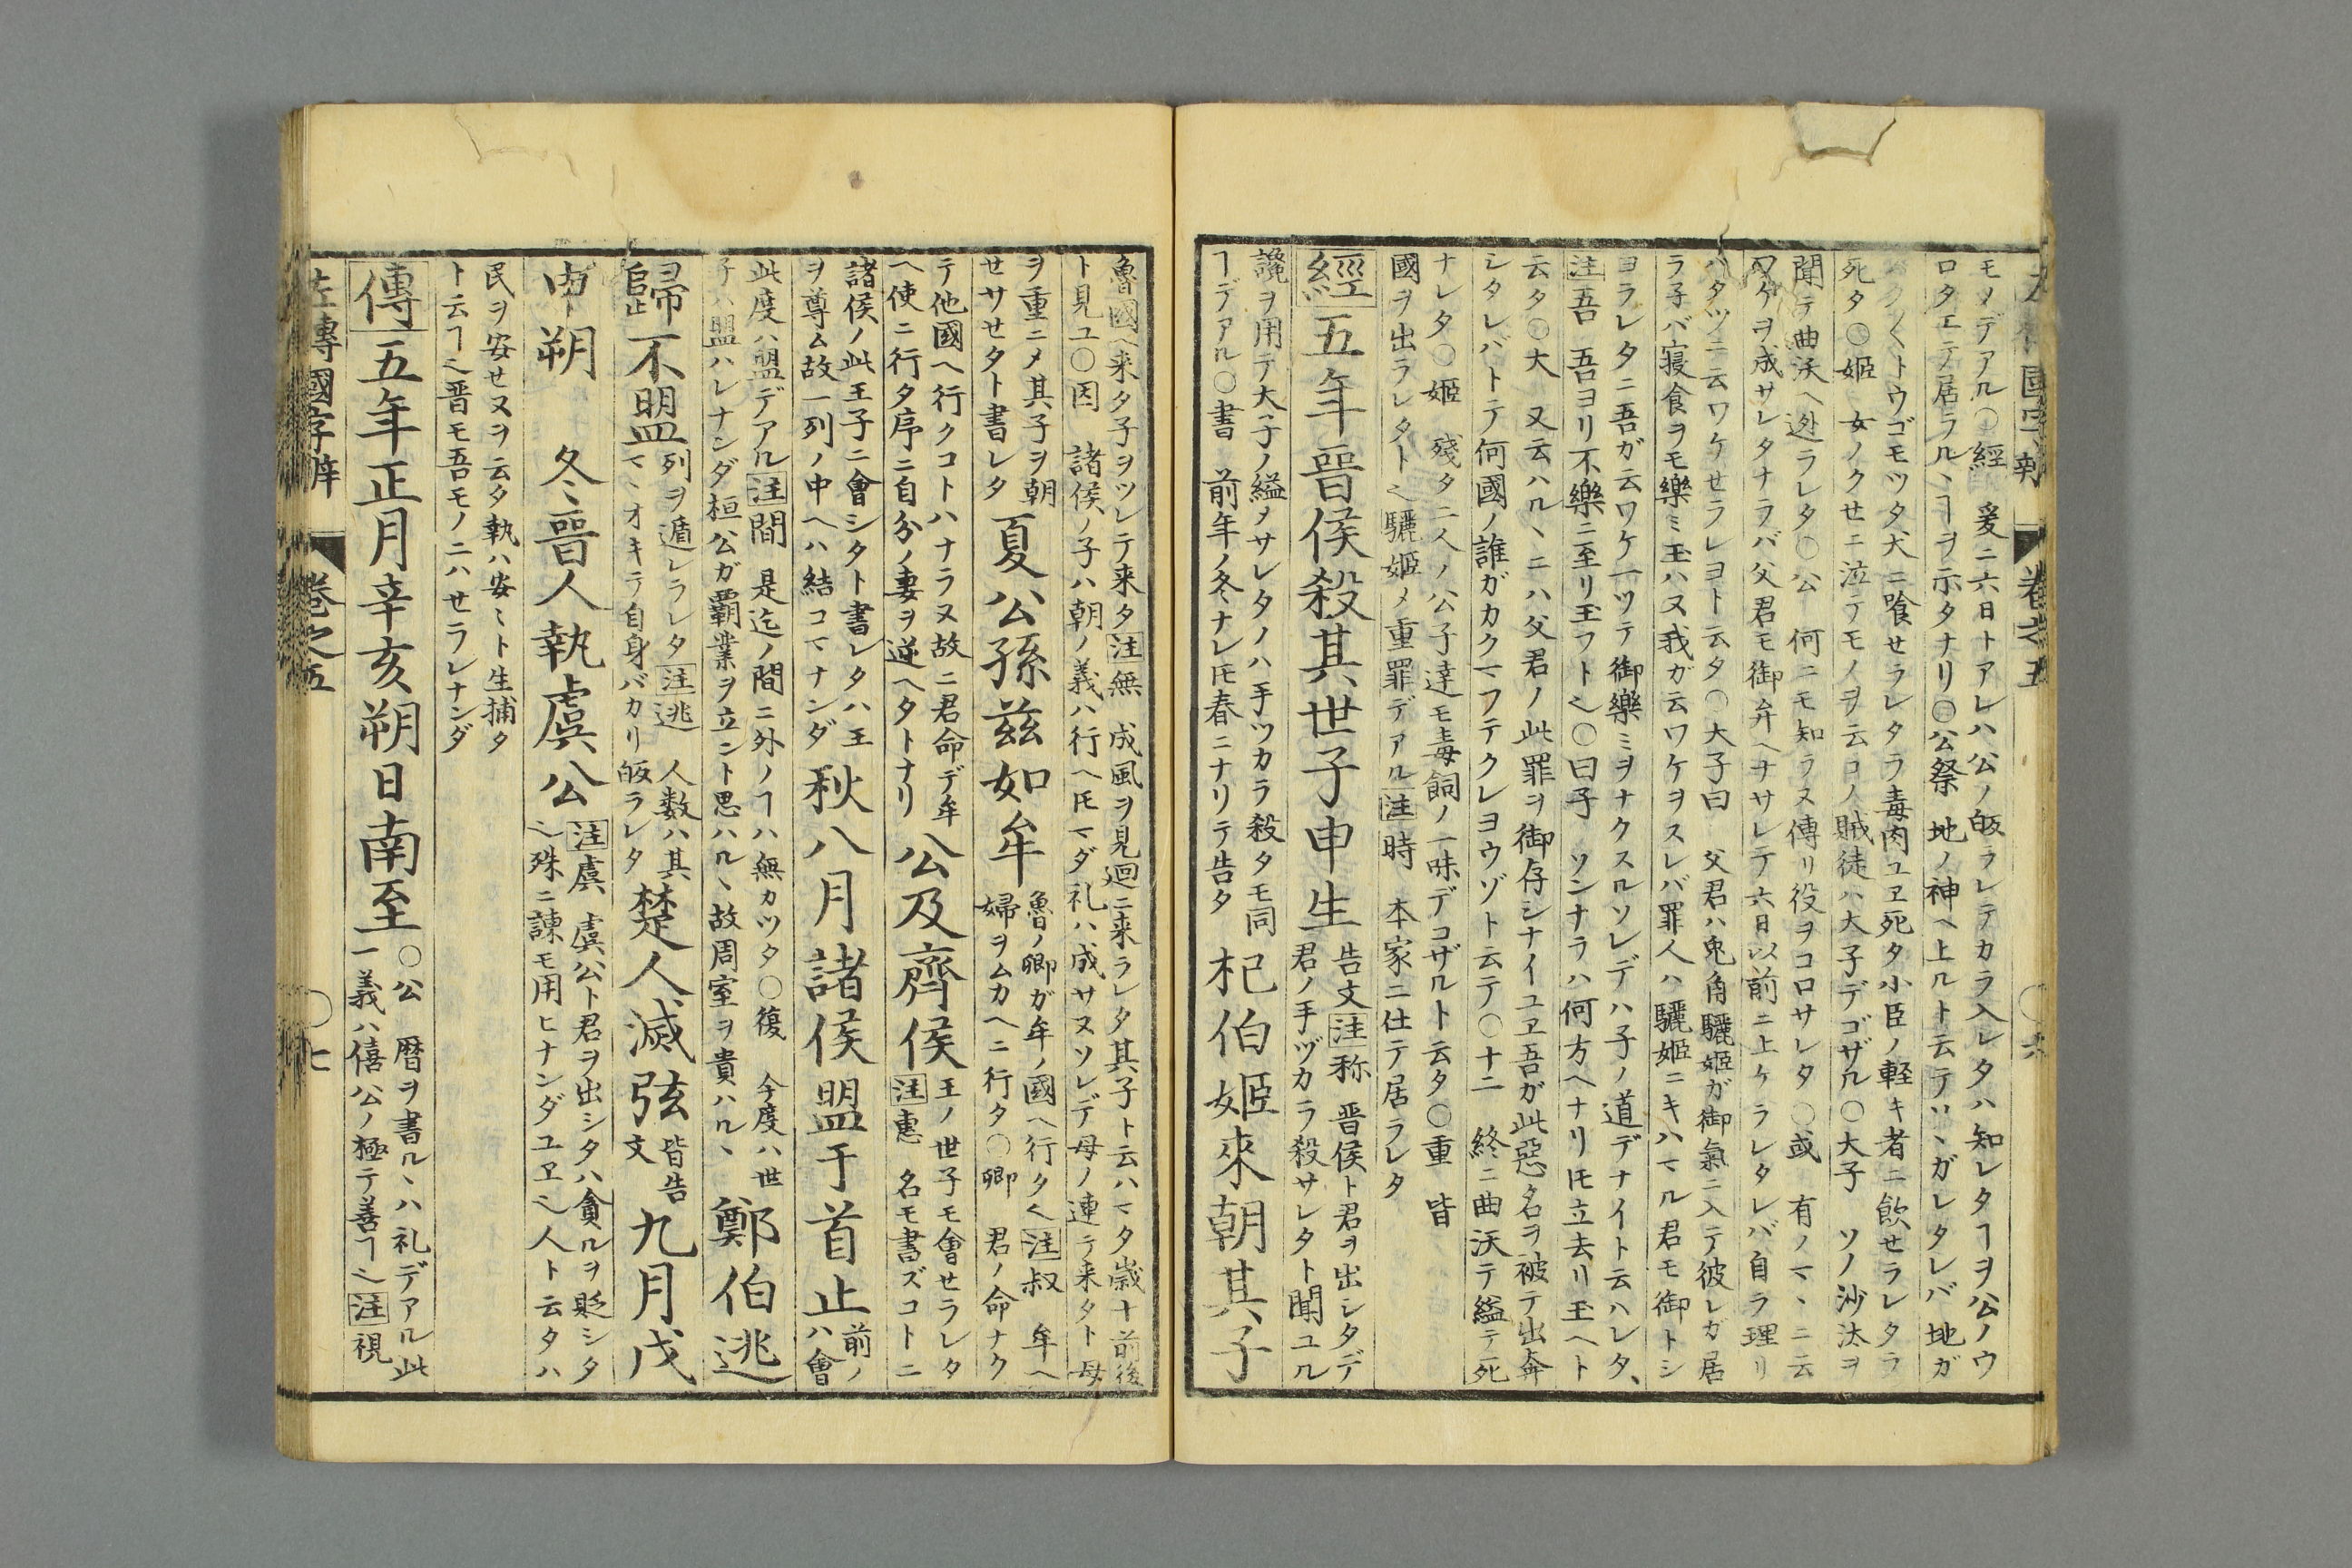 モノデアル○經 爰ニ六日トアレハ公ノ皈ラレテカラ入レタハ知レタヿヲ公ノウ
ロタエテ居ラルヽヿヲ示タナリ○公祭 地ノ神ヘ上ルト云テソヽガレタレバ地ガ
クトウゴモツタ犬ニ喰セラレタラ毒肉ユヱ死タ小臣ノ軽キ者ニ飲セラレタラ
死タ○姫 女ノクセニ泣テモノヲ云コノ賊徒ハ大子デゴザル○大子 ソノ沙汰ヲ
聞テ曲沃ヘ迯ラレタ○公 何ニモ知ラヌ傅リ役ヲコロサレタ○或 有ノマヽニ云
ワケヲ成サレタナラバ父君モ御弁ヘナサレテ六日以前ニ上ケラレタレバ自ラ理リ
ハタツニ云ワケセラレヨト云タ○大子曰 父君ハ兎角驪姫ガ御氣ニ入テ彼レガ居
ラ子バ寝食ヲモ樂ミ玉ハヌ我ガ云ワケヲスレバ罪人ハ驪姫ニキハマル君モ御トシ
ヨラレタニ吾ガ云ワケ一ツテ御樂ミヲナクスルソレデハ子ノ道デナイト云ハレタ、
注吾 吾ヨリ不樂ニ至リ玉フト𪜈○曰子 ソンナラハ何方ヘナリ𪜈立去リ玉ヘト
云タ○大 又云ハルヽニハ父君ノ此罪ヲ御存シナイユヱ吾ガ此惡名ヲ被テ出奔
シタレバトテ何國ノ誰ガカクマフテクレヨウゾト云テ○十二 終ニ曲沃テ縊テ死
ナレタ○姫 殘タ二人ノ公子達モ毒飼ノ一味デコザルト云タ○重 皆
國ヲ出ラレタト也驪姫ノ重罪デアル注時 本家ニ仕テ居ラレタ
經五年晉侯殺其世子申生
告文注称 晋侯ト君ヲ出シタデ
君ノ手ヅカラ殺サレタト聞ユル
讒ヲ用テ大子ノ縊メサレタノハ手ツカラ殺タモ同
ヿデアル○書 前年ノ冬ナレ𪜈春ニナリテ告タ
杞伯姫來朝其子
魯國ヘ来タ子ヲツレテ来タ注無 成風ヲ見廻ニ来ラレタ其子ト云ハマタ歳十前後
ト見ユ○因 諸侯ノ子ハ朝ノ義ハ行ヘ𪜈マダ礼ハ成サヌソレデ母ノ連テ来タト母
ヲ重ニメ其子ヲ朝
セサセタト書レタ
夏公孫茲如牟
魯ノ卿ガ牟ノ國ヘ行ク也注叔 牟ヘ
婦ヲムカヘニ行タ○卿 君ノ命ナク
テ他國ヘ行クコトハナラヌ故ニ君命デ牟
ヘ使ニ行タ序ニ自分ノ妻ヲ逆ヘタトナリ
公及齊侯
王ノ世子モ會セラレタ
注惠 名モ書ズコトニ
諸侯ノ此王子ニ會シタト書レタハ王
ヲ尊ム故一列ノ中ヘハ結コマナンダ
秋八月諸侯盟于首止
前ノ
ハ會
此度ハ盟デアル注間 是迄ノ間ニ外ノヿハ無カツタ○復 今度ハ世
子ハ盟ハレナンダ桓公ガ覇業ヲ立ント思ハルヽ故周室ヲ貴ハルヽ
鄭伯逃
歸不盟
列ヲ遁レラレタ注逃 人数ハ其
マヽオキテ自身バカリ皈ラレタ
楚人滅弦
皆告
文
九月戊
申朔 冬晉人執虞公
注虞 虞公ト君ヲ出シタハ貪ルヲ貶シタ
也殊ニ諌モ用ヒナンダユヱ也人ト云タハ
民ヲ安セヌヲ云タ執ハ安ミト生捕タ
ト云ヿ也晋モ吾モノニハセラレナンダ
傳五年正月辛亥朔日南至
○公 暦ヲ書ルヽハ礼デアル此
一義ハ僖公ノ極テ善ヿ也注視
左傳國字辨 巻之五 ○七